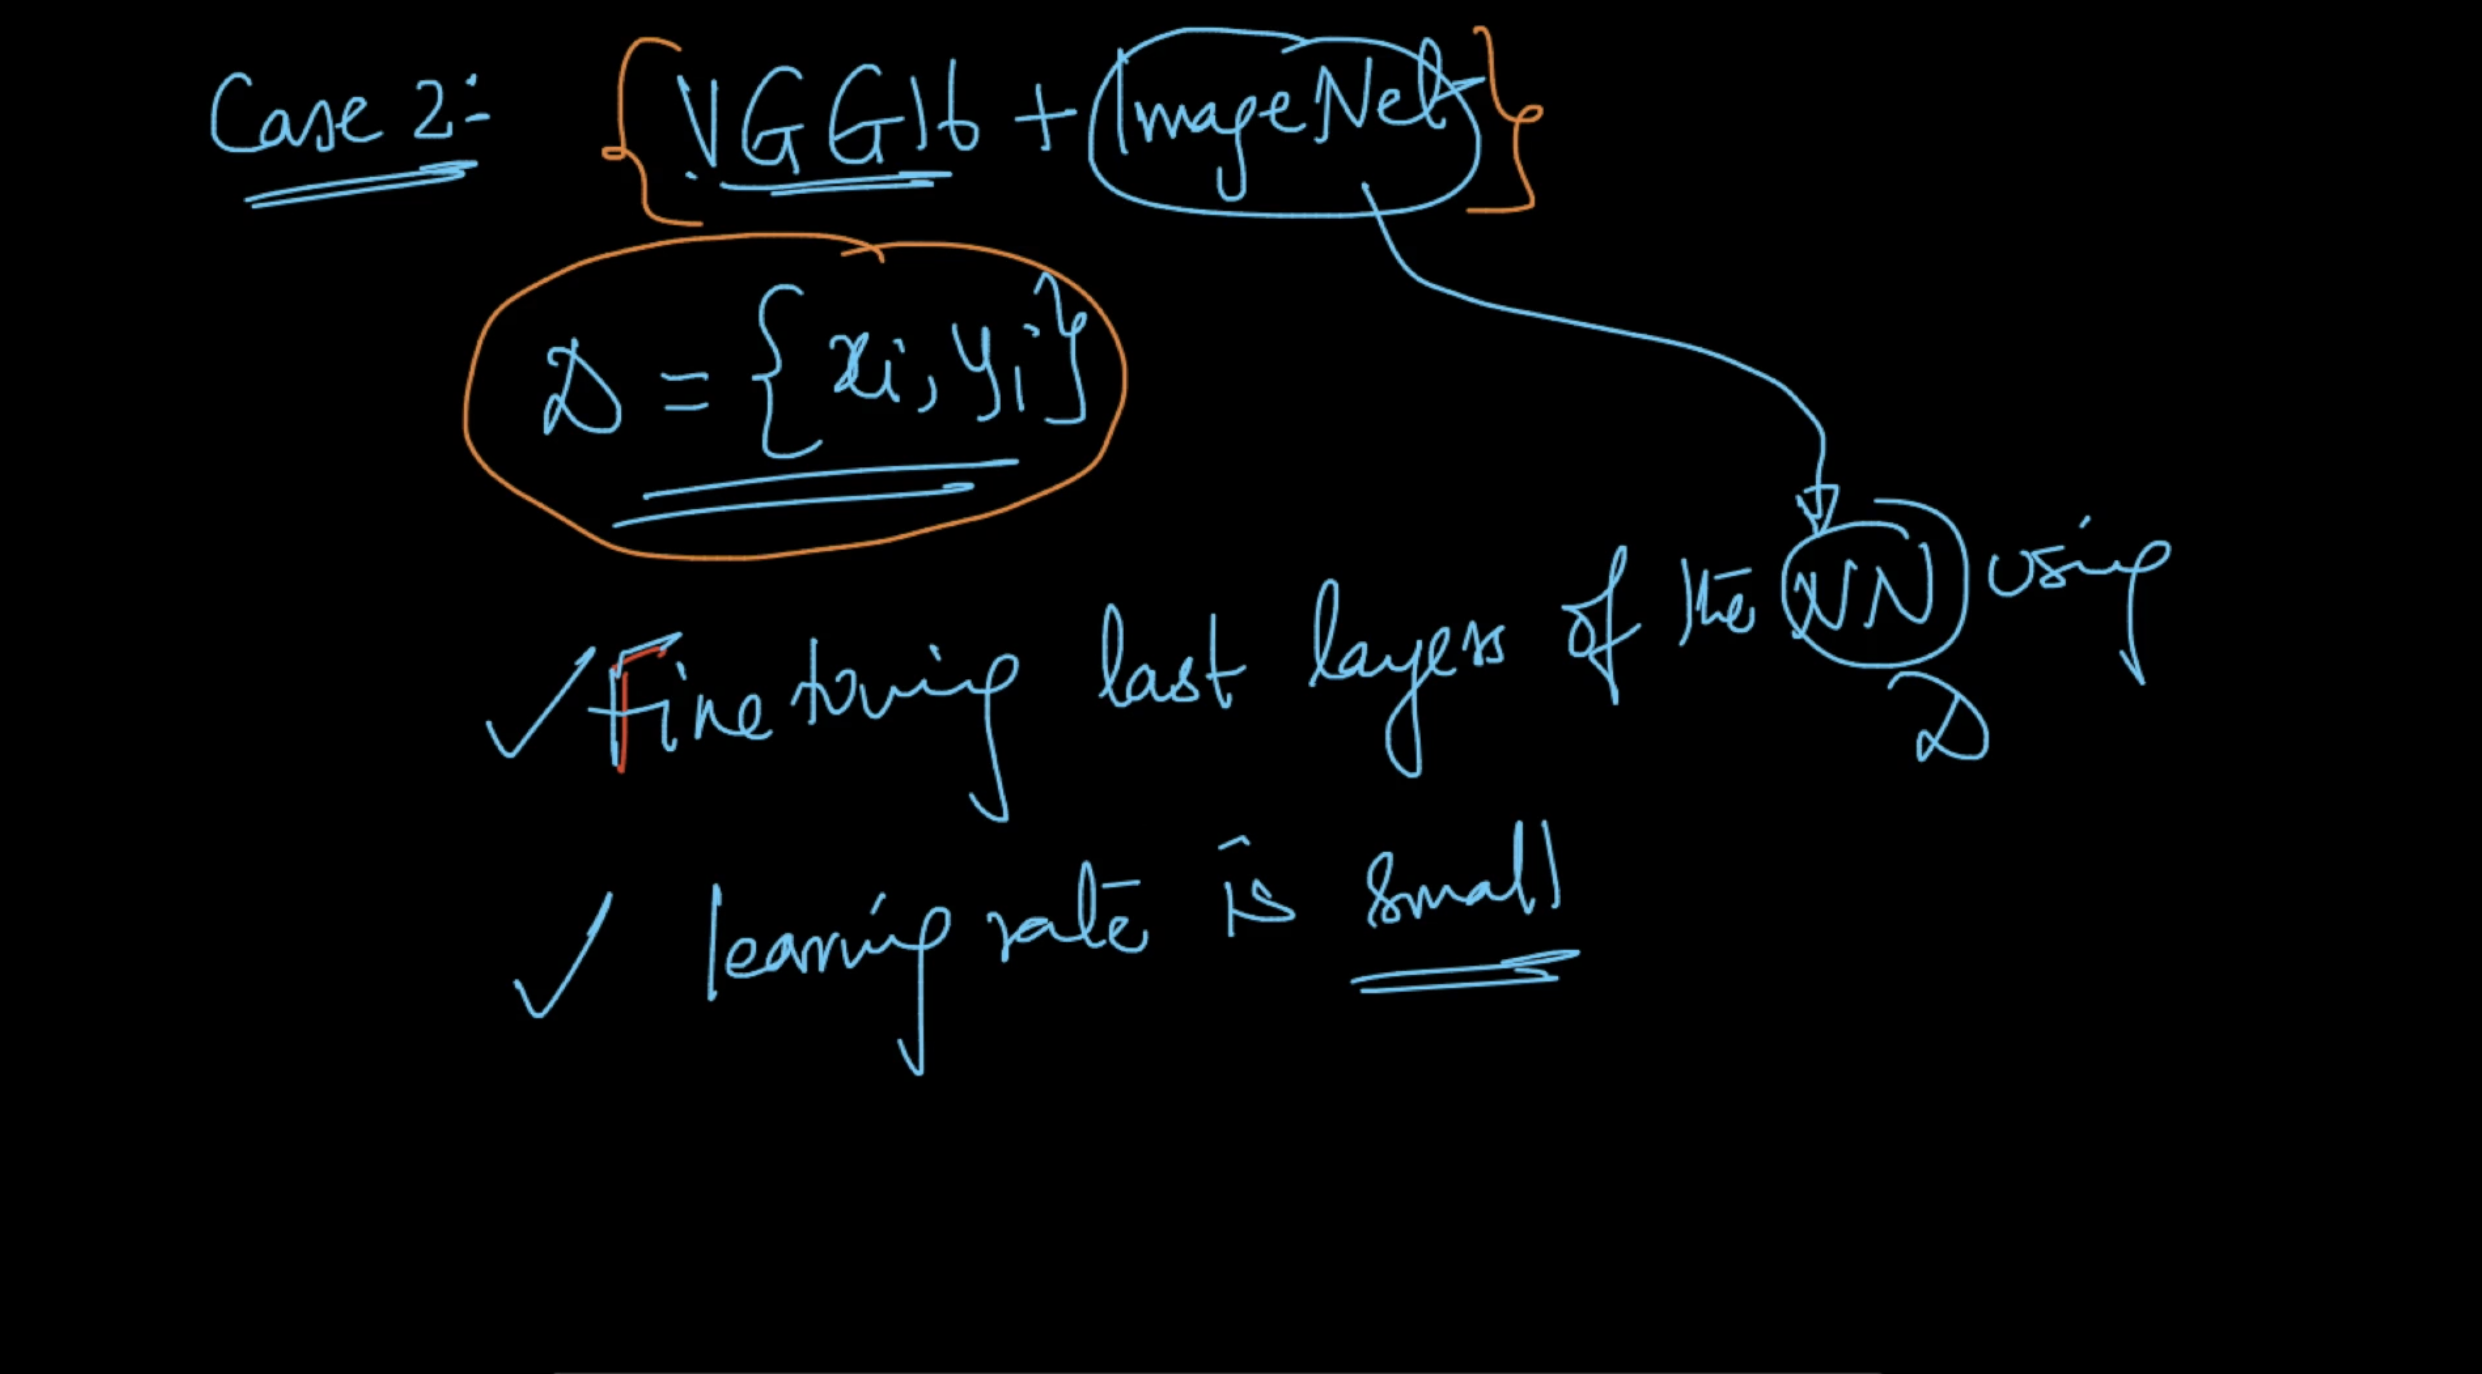 Case 2:- {VGG16 + ImageNet}
D = {xi, yi}
✓ Fine tuning last layers of the NN using
D
✓ learning rate is small